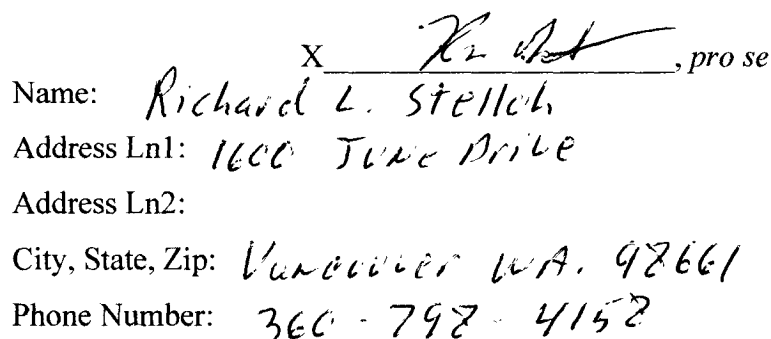 X, pro se
Name: Richard L. Stelloh
Address Ln1: 1600 June Drive
Address Ln2:
City, State, Zip: Vancouver WA. 98661
Phone Number: 360-798-4158